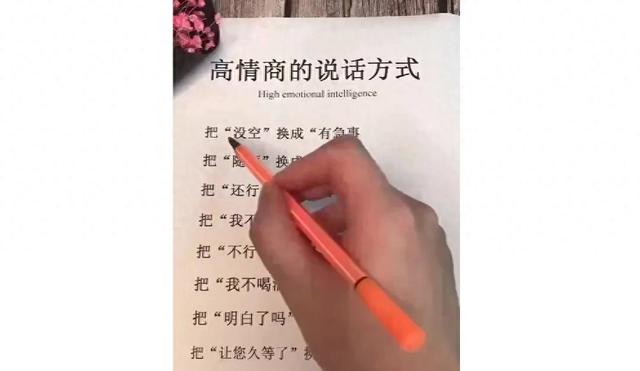 高情商的说话方式
High emotional intelligence
把“没空”换成“有急事
把“随 换成
把“还行
把“我不
把“不行
把“我不喝
把“明白了吗”
把“让您久等了”